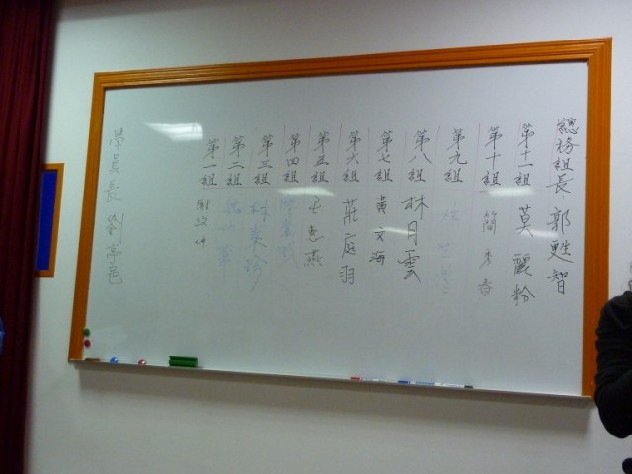 總務組長 郭甦智
第十一組 莫麗粉
第十組 簡秀春
第九組
第八組 林月雲
第七組 黃文海
第六組 莊庭羽
第五組 惠燕
第四組
第三組 林
第二組
第一組
學員長 劉亭邑